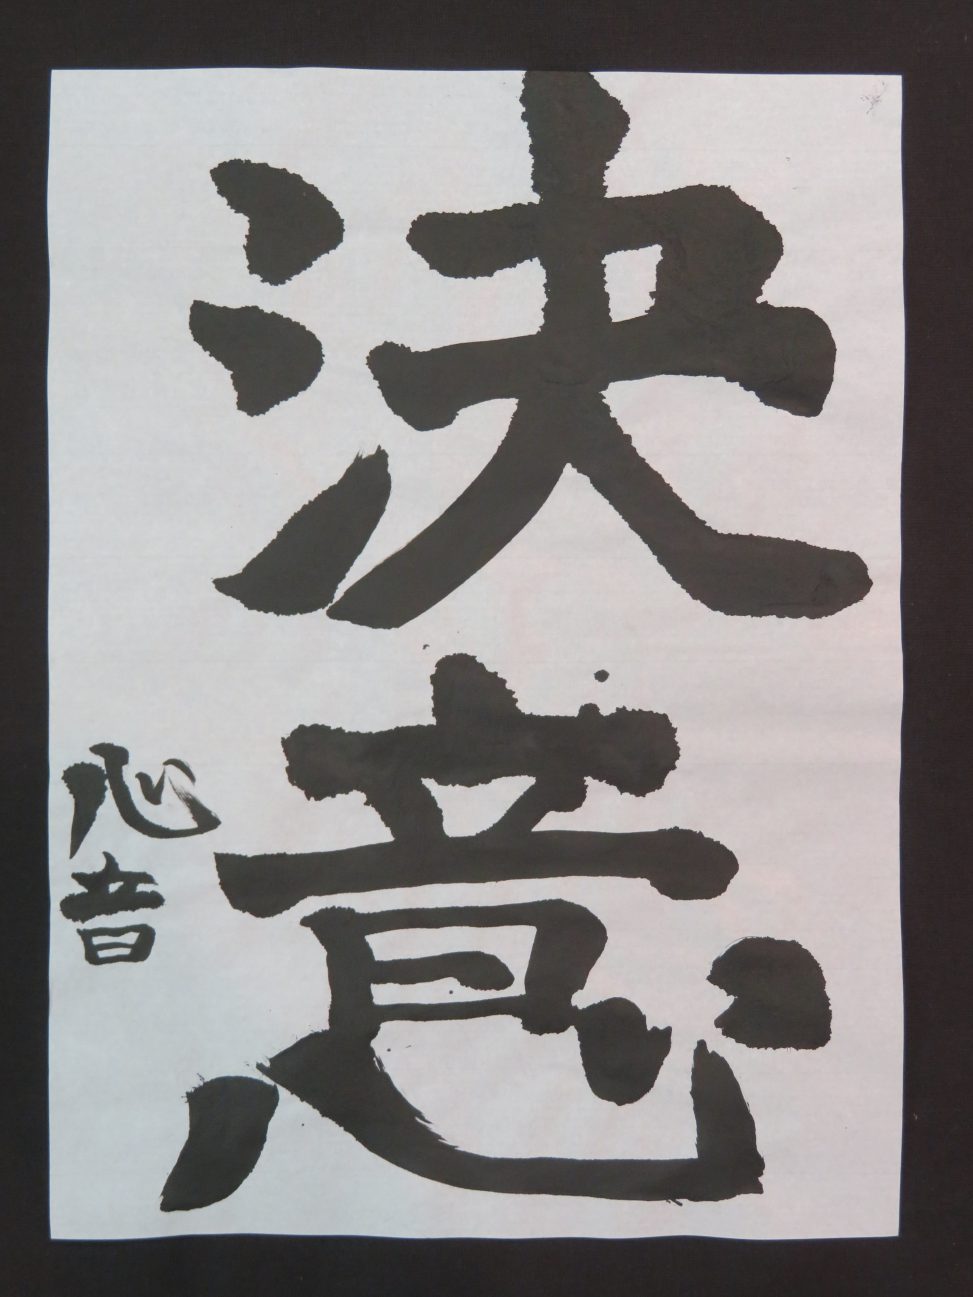 決意
心音